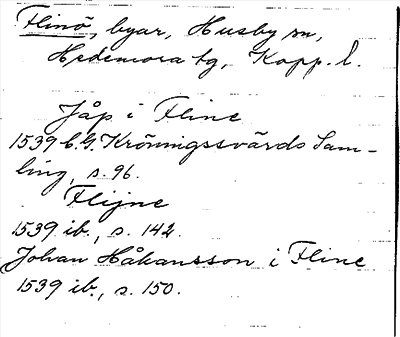 Flinö, byar, Husby sn,
Hedemora tg, Kopp. l.
Jåp i Fline
1539 C.G. Krönningssvärds Sam-
ling, s. 96.
Flijne
1539 ib., s. 142.
Johan Håkansson i Fline
1539 ib., s. 150.